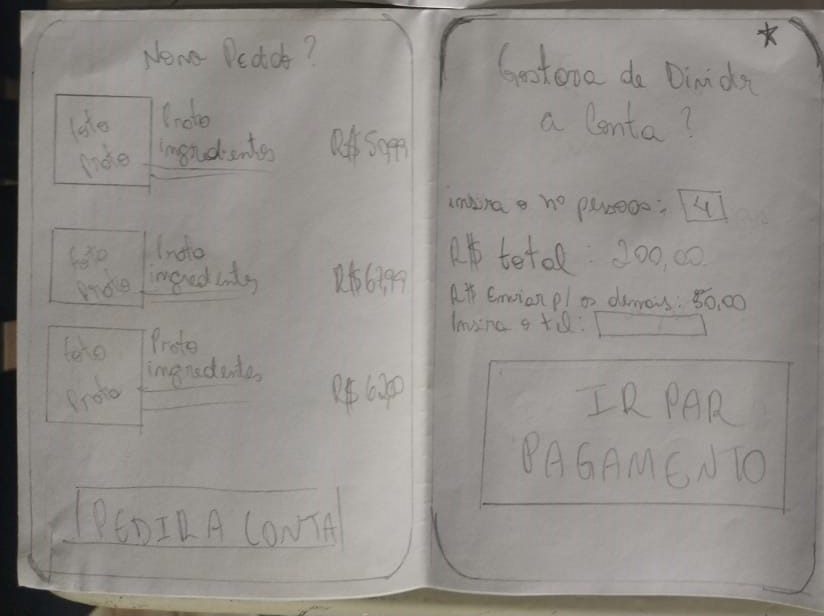 Novo Pedido?
foto
Prato
Prato
ingredientes
R$ 50,99
foto
Prato
Prato
ingredientes
R$ 67,99
foto
Prato
Prato
ingredientes
R$ 62,00
PEDIR A CONTA
Gostova de Dividir
a Conta?
insira o nº pessoas: 4
R$ total: 200,00
R$ Enviar p/ os demais: 50,00
Insira o tel:
IR PAR
PAGAMENTO